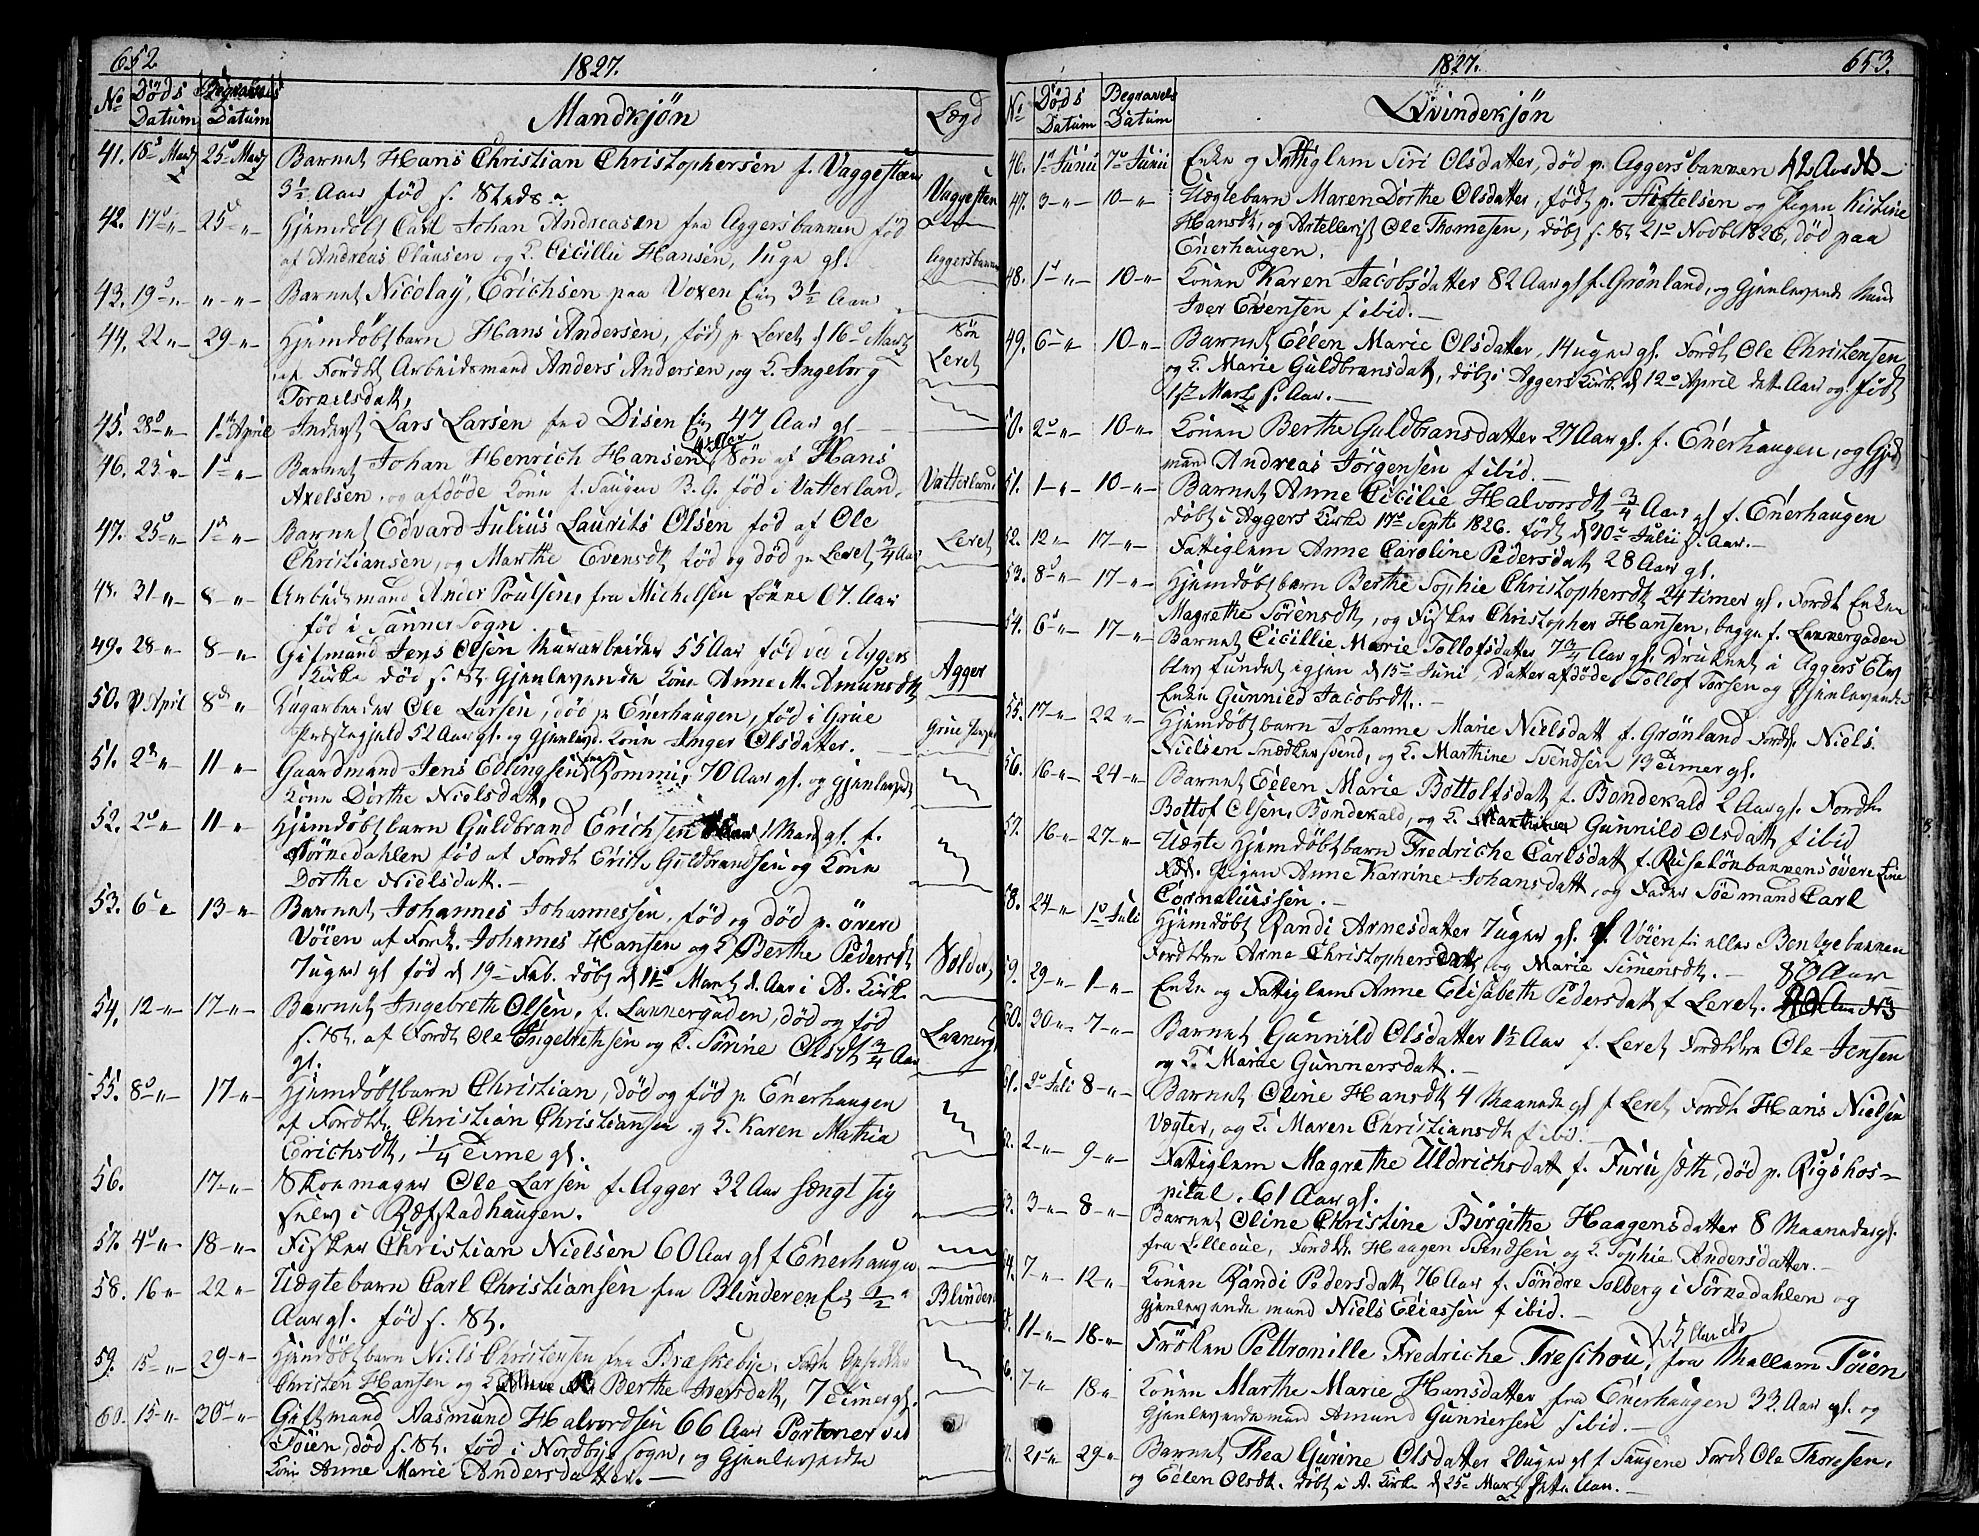 652.
1827.
No
Döds Datum
Begravelses Datum
Mandkjön
Lægd
41. 18d Martz 25d Martz Barnet Hans Christian Christophersen f. Vaggesteen Vaggesteen
3½ Aar, född s. Steds.
42. 17d -"- 25d -"- Hjemdöbt Carl Johan Andreasen fra Aggersbakken föd Aggersbakken
af Andreas Clausen og K. Cicillie Hansen, 1 uge gl.
43. 19d -"- -"- Barnet Nicolay Erichsen paa Voxen Eie 3½ Aar
44. 22 -"- 29 -"- Hjemdöbtbarn Hans Andersen, föd p. Leret d 16d Martz Leret
af Fordt Arbeidsmand Anders Andersen, og K. Ingeborg
Torkelsdatt,
45. 28d -"- 1d April Inderst Lars Larsen fra Disen Eie 47 Aar gl
46. 23 -"- 1d -"- Barnet Johan Henrich Hansen, Sön af Hans
Axelsen, og afdöde Kone f. Saugen B. G. föd i Vatterland. Vatterland
47. 25d -"- 1d -"- Barnet Edvard Julius Laurits Olsen föd af Ole
Christiansen, og Marthe Evensdt föd og död p. Leret ¾ Aar Leret
48. 31 -"- 8 -"- Arbeidsmand Anders Poulsen, fra Michelsen Lökke 67. Aar
föd i Sanner Sogn
49. 28 -"- 8 -"- Giftmand Jens Olsen Murarbeider 55 Aar föd ved Aggers
Kirke död s. St. Gjenlevende Kone Anne M. Amundsdt Agger
50. 1 April 8d -"- Dagarbeider Ole Larsen, död p. Enerhaugen, föd i Grue
Præstegjeld 52 Aar gl. og Gjenlevd. Kone Inger Olsdatter. Grue
51. 2d -"- 11 -"- Gaardmand Jens Edlingsen Rommi, 70 Aar gl. og gjenlevende
Kone Dorthe Nielsdatt,
52. 2d -"- 11 -"- Hjemdöbtbarn Guldbrand Erichsen 1 Maaned gl. f.
Sörkedahlen föd af Fordt Erich Guldbrandsen og Kone
Dorthe Nielsdatt.
53. 6d " 13 -"- Barnet Johannes Johannessen, föd og död p. övere
Vöien af Fordt. Johannes Hansen og K. Berthe Pedersdt
7 uger gl föd d 19 Feb. döbt d 11d Martz d. Aar i A. Kirke
54. 12 -"- 17 -"- Barnet Ingebreth Olsen, f. Lakkergaden, död og föd
s. St. af Fordt Ole Ingebrethsen og K. Sörine Olsdt ¾ Aar
gl.
55. 8d -"- 17 -"- Hjemdöbtbarn Christian, död og föd p. Enerhaugen
af Fordt. Christian Christiansen og K. Karen Mathia
Erichsdt, ¼ Time gl.
56. 17 -"- Skoemager Ole Larsen f. Agger 32 Aar hængt sig
selv i Refstadhaugen.
57. 4d -"- 18 -"- Fisker Christian Nielsen 60 Aar gl f Enerhaugen
58. 16 " 22 -"- Uægtebarn Carl Christiansen fra Blinderen Eie ½ Blinderen
Aar gl. föd s. St.
59. 15 -"- 29 -"- Hjemdöbtbarn Niels Christensen fra Brækkebye, Fordt
Christen Hansen og K. Berthe Iversdatt, 7 Timer gl.
60. 15 -"- 20d -"- Giftmand Aasmund Halvordsen 66 Aar Portoner ved
Töien, död s. St. föd i Nordbye Sogn, og Gjenlevende
Kone Anne Marie Andersdatter.
1827.
653.
No
Döds Datum
Begravels Datum
Qvindekjön
46. 1d Junii 7d Junii Enke og Fattiglem Siri Olsdatter, död p. Aggersbakken 42 Aar
47. 3 -"- 10 -"- Uægtebarn Maren Dorthe Olsdatter, födt p. Stiftelsen og Pigen Kistine
Hansdt, og Artellerist Ole Thomesen, döbt s. St 21d Novbr 1826, död paa
Enerhaugen.
48. 1d -"- 10 -"- Konen Karen Jacobsdatter 82 Aar gl f. Grönland, og Gjenlevende Mand
Iver Evensen f ibid.
49. 6 -"- 10 -"- Barnet Ellen Marie Olsdatter, 14 uger gl. Fordt Ole Christensen
og K. Marie Guldbransdatt, döbt i Aggers Kirke d 12d April dette Aar og föd
1ste Martz s. Aar.
50. 2d -"- 10 -"- Konen Berthe Guldbransdatter 27 Aar gl. f. Enerhaugen, og Gjenl
mand Andreas Jörgensen f ibid.
51. 1 -"- 10 -"- Barnet Anne Cicilie Halvorsdt ¾ Aar gl f. Enerhaugen
döbt i Aggers Kirke 17d Septb 1826. födt d 10d Julii s. Aar.
52. 12 " 17 -"- Fattiglem Anne Caroline Pedersdatt 28 Aar gl.
53. 8d -"- 17 -"- Hjemdöbtbarn Berthe Sophie Christophersdt 24 timer gl. Fordt Enken
Magrethe Sörensdt, og Fisker Christopher Hansen, begge f. Lakkergaden
54. 6d " 17 -"- Barnet Cicillie Marie Tollofsdatter 7¾ Aar gl. Druknet i Aggers Elv
blev fundet igjen d 15d Juni, Datter afdöde Tollof Torsen og Gjenlevende
Enke Gunnild Jacobsdt.
55. 17 -"- 22 -"- Hjemdöbtbarn Johanne Marie Nielsdatt f. Grönland Fordt. Niels
Nielsen Snedkersvend, og K. Marthine Svendsen 13 Timer gl.
56. 16 -"- 24 -"- Barnet Ellen Marie Bottolfsdatt f. Bondekald 2 Aar gl. Fordt
Bottof Olsen, Bondekald, og K. Gunnild Olsdatt f ibid
57. 16 -"- 27 -"- Uægte Hjemdöbtbarn Fredriche Carlsdatt f. Ruselökbakkens övere Line
Fdt. Pigen Anne Karrine Johansdatt, og Fader Söemand Carl
Corneliussen.
58. 24 -"- 1d Juli Hjemdöbt Randi Arnesdatter 7 uger gl. f. Vöien eller Bentzebakken
Fordtdre Arne Christophersen og Marie Simensdt.
59. 29 -"- 1 -"- Enke og Fattiglem Anne Elisabeth Pedersdatt f Leret. 80 Aar
60. 30 " 7 -"- Barnet Gunnild Olsdatter 1½ Aar f. Leret Fordtdre Ole Jensen
og K. Marie Gunnersdatt.
61. 2d Juli 8 -"- Barnet Oline Hansdt 4 Maaneder gl f Leret Fordt Hans Nielsen
Vægter, og K. Maren Christiansdt f ibid.
62. 2 -"- 9 -"- Fattiglem Magrethe Uldrichsdatt f. Furuseth, död p. Rigshos-
pital. 61 Aar gl.
63. 3 -"- 8 -"- Barnet Oline Christine Birgithe Haagensdatter 8 Maaneder gl.
fra Lilleoue, Fordt. Haagen Svendsen og K. Sophie Andersdatter.
64. 7 -"- 12 -"- Konen Randi Pedersdatt 76 Aar f. Söndre Solberg i Sörkedahlen og
Gjenlevende mand Niels Eliassen f ibid.
11 -"- 18 -"- Fröken Pettronille Fredriche Treschou, 25 Aar fra Mellem Töien
7 -"- 18 " Konen Marthe Marie Hansdatter fra Enerhaugen 33 Aar gl. og
Gjenlevende mand Amund Gunnersen f ibid.
21d " 29 " Barnet Thea Gurine Olsdatter 20 uger gl f Saugene Fordt Ole Thoresen,
og Ellen Olsdt. döbt i A. Kirke d 25d Martz dette Aar.